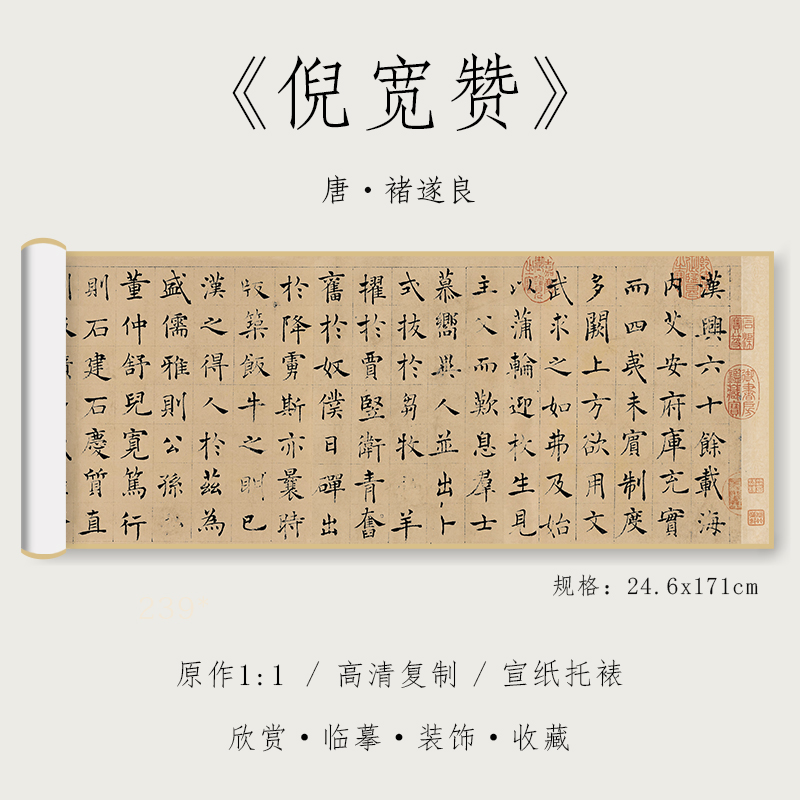 《倪宽赞》
唐·褚遂良
漢興六十餘載海
内艾安府庫充實
而四夷未賓制度
多闕上方欲用文
武求之如弗及始
以蒲輪迎枚生見
主父而歎息羣士
慕嚮異人並出卜
式拔於芻牧羊
擢於賈豎衛青奮
舊於奴僕日磾出
於降虜斯亦曩時
版築飯牛之明已
漢之得人於茲為
盛儒雅則公孫
董仲舒兒寬篤行
則石建石慶質直
规格：24.6x171cm
原作1:1 / 高清复制 / 宣纸托裱
欣赏·临摹·装饰·收藏